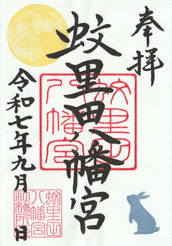 奉拝
蚊里田八幡宮
令和七年九月 日
蚊里田
八幡宮
蚊里田
八幡宮
社務所